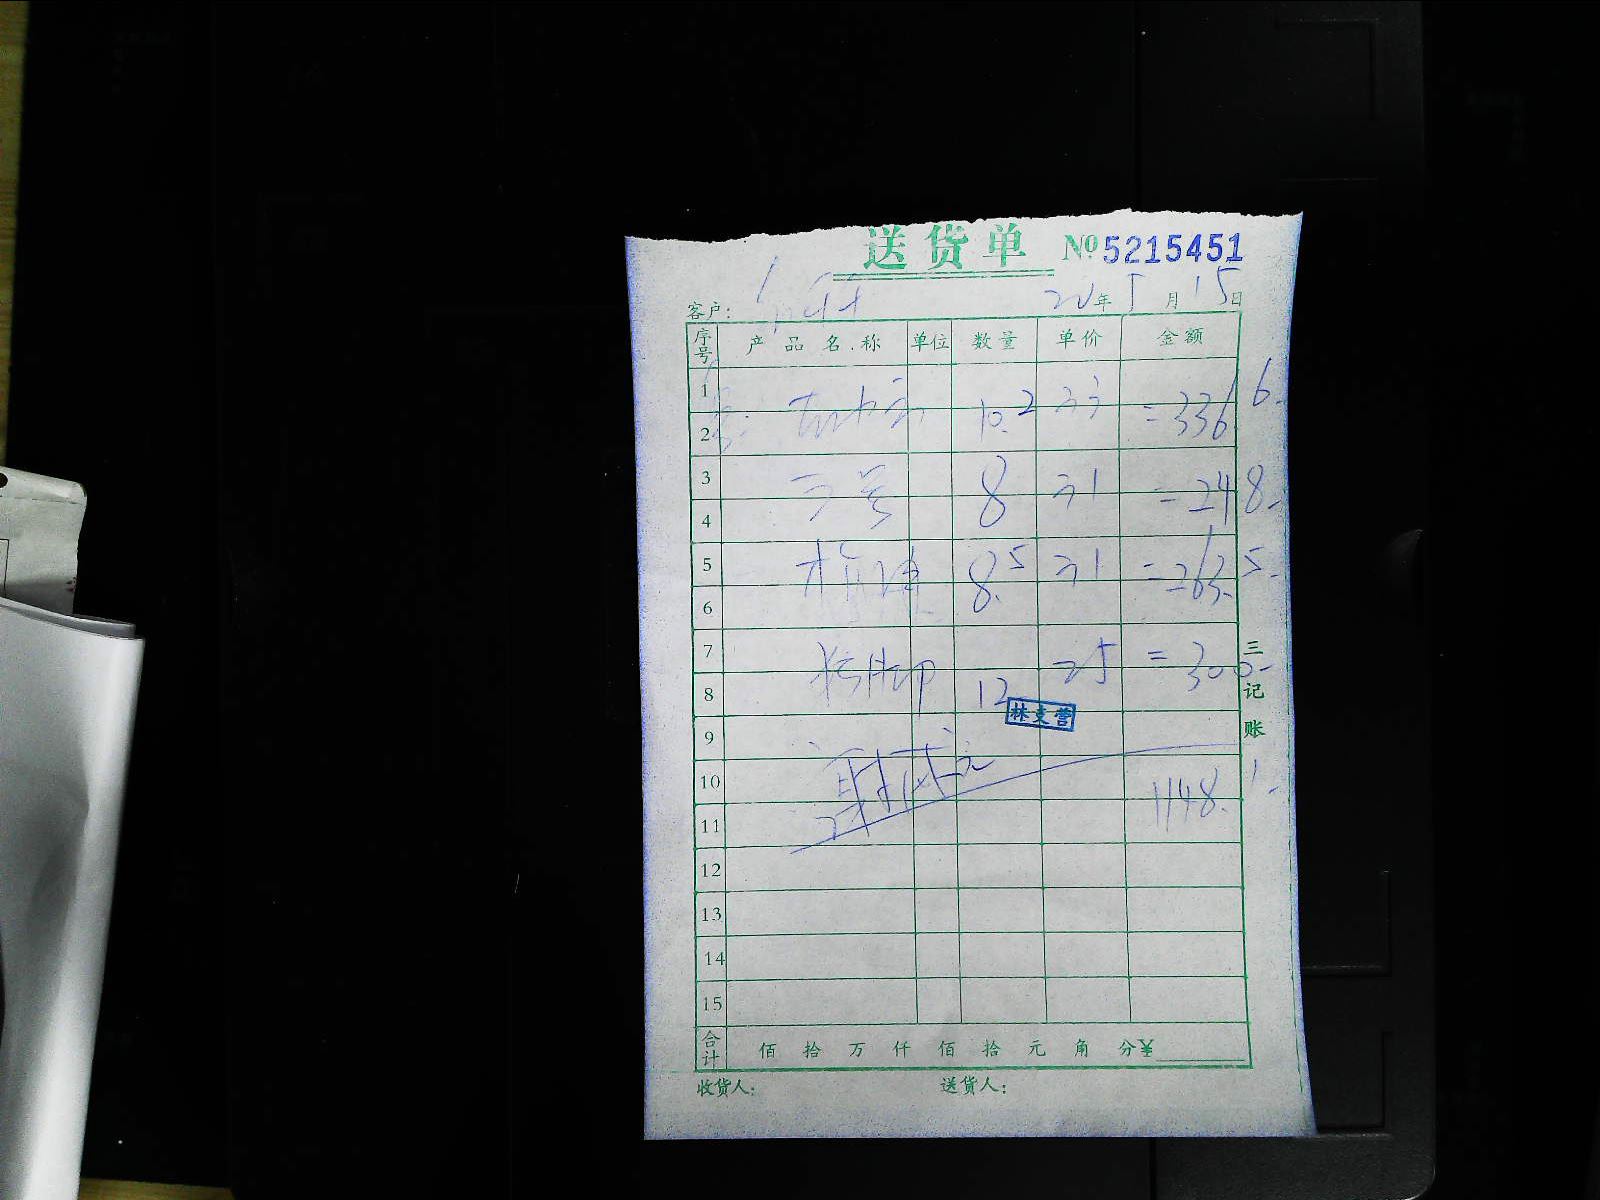 送货单 №5215451
客户： 年 5月15日
序号 产品名称 单位 数量 单价 金额
1
2 10.2 33 =336.6
3
4 三号 8 31 =248
5
6 8.5 31 =263.5
7 25 =300
8 12
林支营
9
10 1148.1
11
12
13
14
15
合计 佰 拾 万 仟 佰 拾 元 角 分 ¥
收货人： 送货人：
三记账